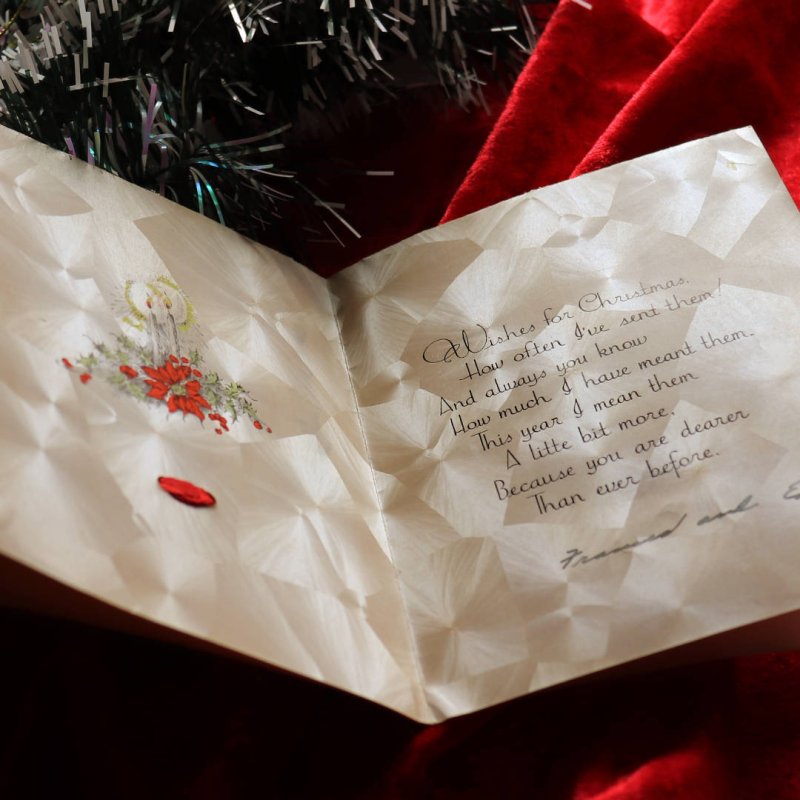 Wishes for Christmas,
How often I've sent them!
And always you know
How much I have meant them.
This year I mean them
A litte bit more,
Because you are dearer
Than ever before.
and